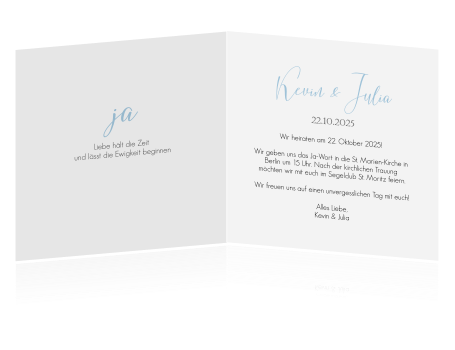 ja
Liebe hält die Zeit
und lässt die Ewigkeit beginnen
Kevin & Julia
22.10.2025
Wir heiraten am 22. Oktober 2025!
Wir geben uns das Ja-Wort in die St. Marien-Kirche in
Berlin um 15 Uhr. Nach der kirchlichen Trauung
möchten wir mit euch im Segelclub St. Moritz feiern.
Wir freuen uns auf einen unvergesslichen Tag mit euch!
Alles Liebe,
Kevin & Julia